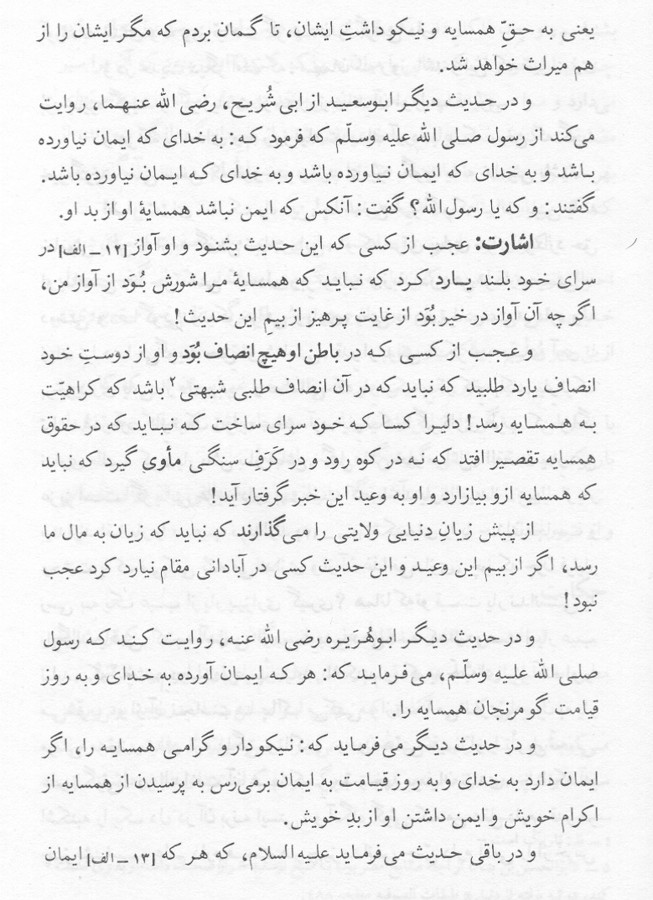 یعنی به حقّ همسایه و نیکوداشتِ ایشان، تا گمان بردم که مگر ایشان را از
هم میراث خواهد شد.
و در حدیث دیگر ابوسعید از ابی شُریح، رضی الله عنهما، روایت
می‌کند از رسول صلی الله علیه وسلّم که فرمود که: به خدای که ایمان نیاورده
باشد و به خدای که ایمان نیاورده باشد و به خدای که ایمان نیاورده باشد.
گفتند: و که یا رسول الله؟ گفت: آنکس که ایمن نباشد همسایهٔ او از بد او.
اشارت: عجب از کسی که این حدیث بشنود و او آواز [۱۲ – الف] در
سرای خود بلند یارد کرد که نباید که همسایهٔ مرا شورش بُوَد از آواز من،
اگر چه آن آواز در خیر بُوَد از غایت پرهیز از بیمِ این حدیث!
و عجب از کسی که در باطن او هیچ انصاف بُوَد و او از دوستِ خود
انصاف یارد طلبید که نباید که در آن انصاف طلبی شبهتی۲ باشد که کراهیّت
به همسایه رسد! دلیرا کسا که خود سرای ساخت که نباید که در حقوق
همسایه تقصیر افتد که نه در کوه رود و در کَرَفِ سنگی مأوی گیرد که نباید
که همسایه ازو بیازارد و او به وعید این خبر گرفتار آید!
از پیش زیانِ دنیایی ولایتی را می‌گذارند که نباید که زیان به مال ما
رسد، اگر از بیم این وعید و این حدیث کسی در آبادانی مقام نیارد کرد عجب
نبود!
و در حدیث دیگر ابوهُرَیره رضی الله عنه، روایت کند که رسول
صلی الله علیه وسلّم، می فرماید که: هر که ایمان آورده به خدای و به روز
قیامت گو مرنجان همسایه را.
و در حدیث دیگر می فرماید که: نیکو دار و گرامی همسایه را، اگر
ایمان دارد به خدای و به روز قیامت به ایمان برمی‌رس به پرسیدن از همسایه از
اکرام خویش و ایمن داشتن او از بدِ خویش.
و در باقی حدیث می فرماید علیه السلام، که هر که [۱۳ – الف] ایمان